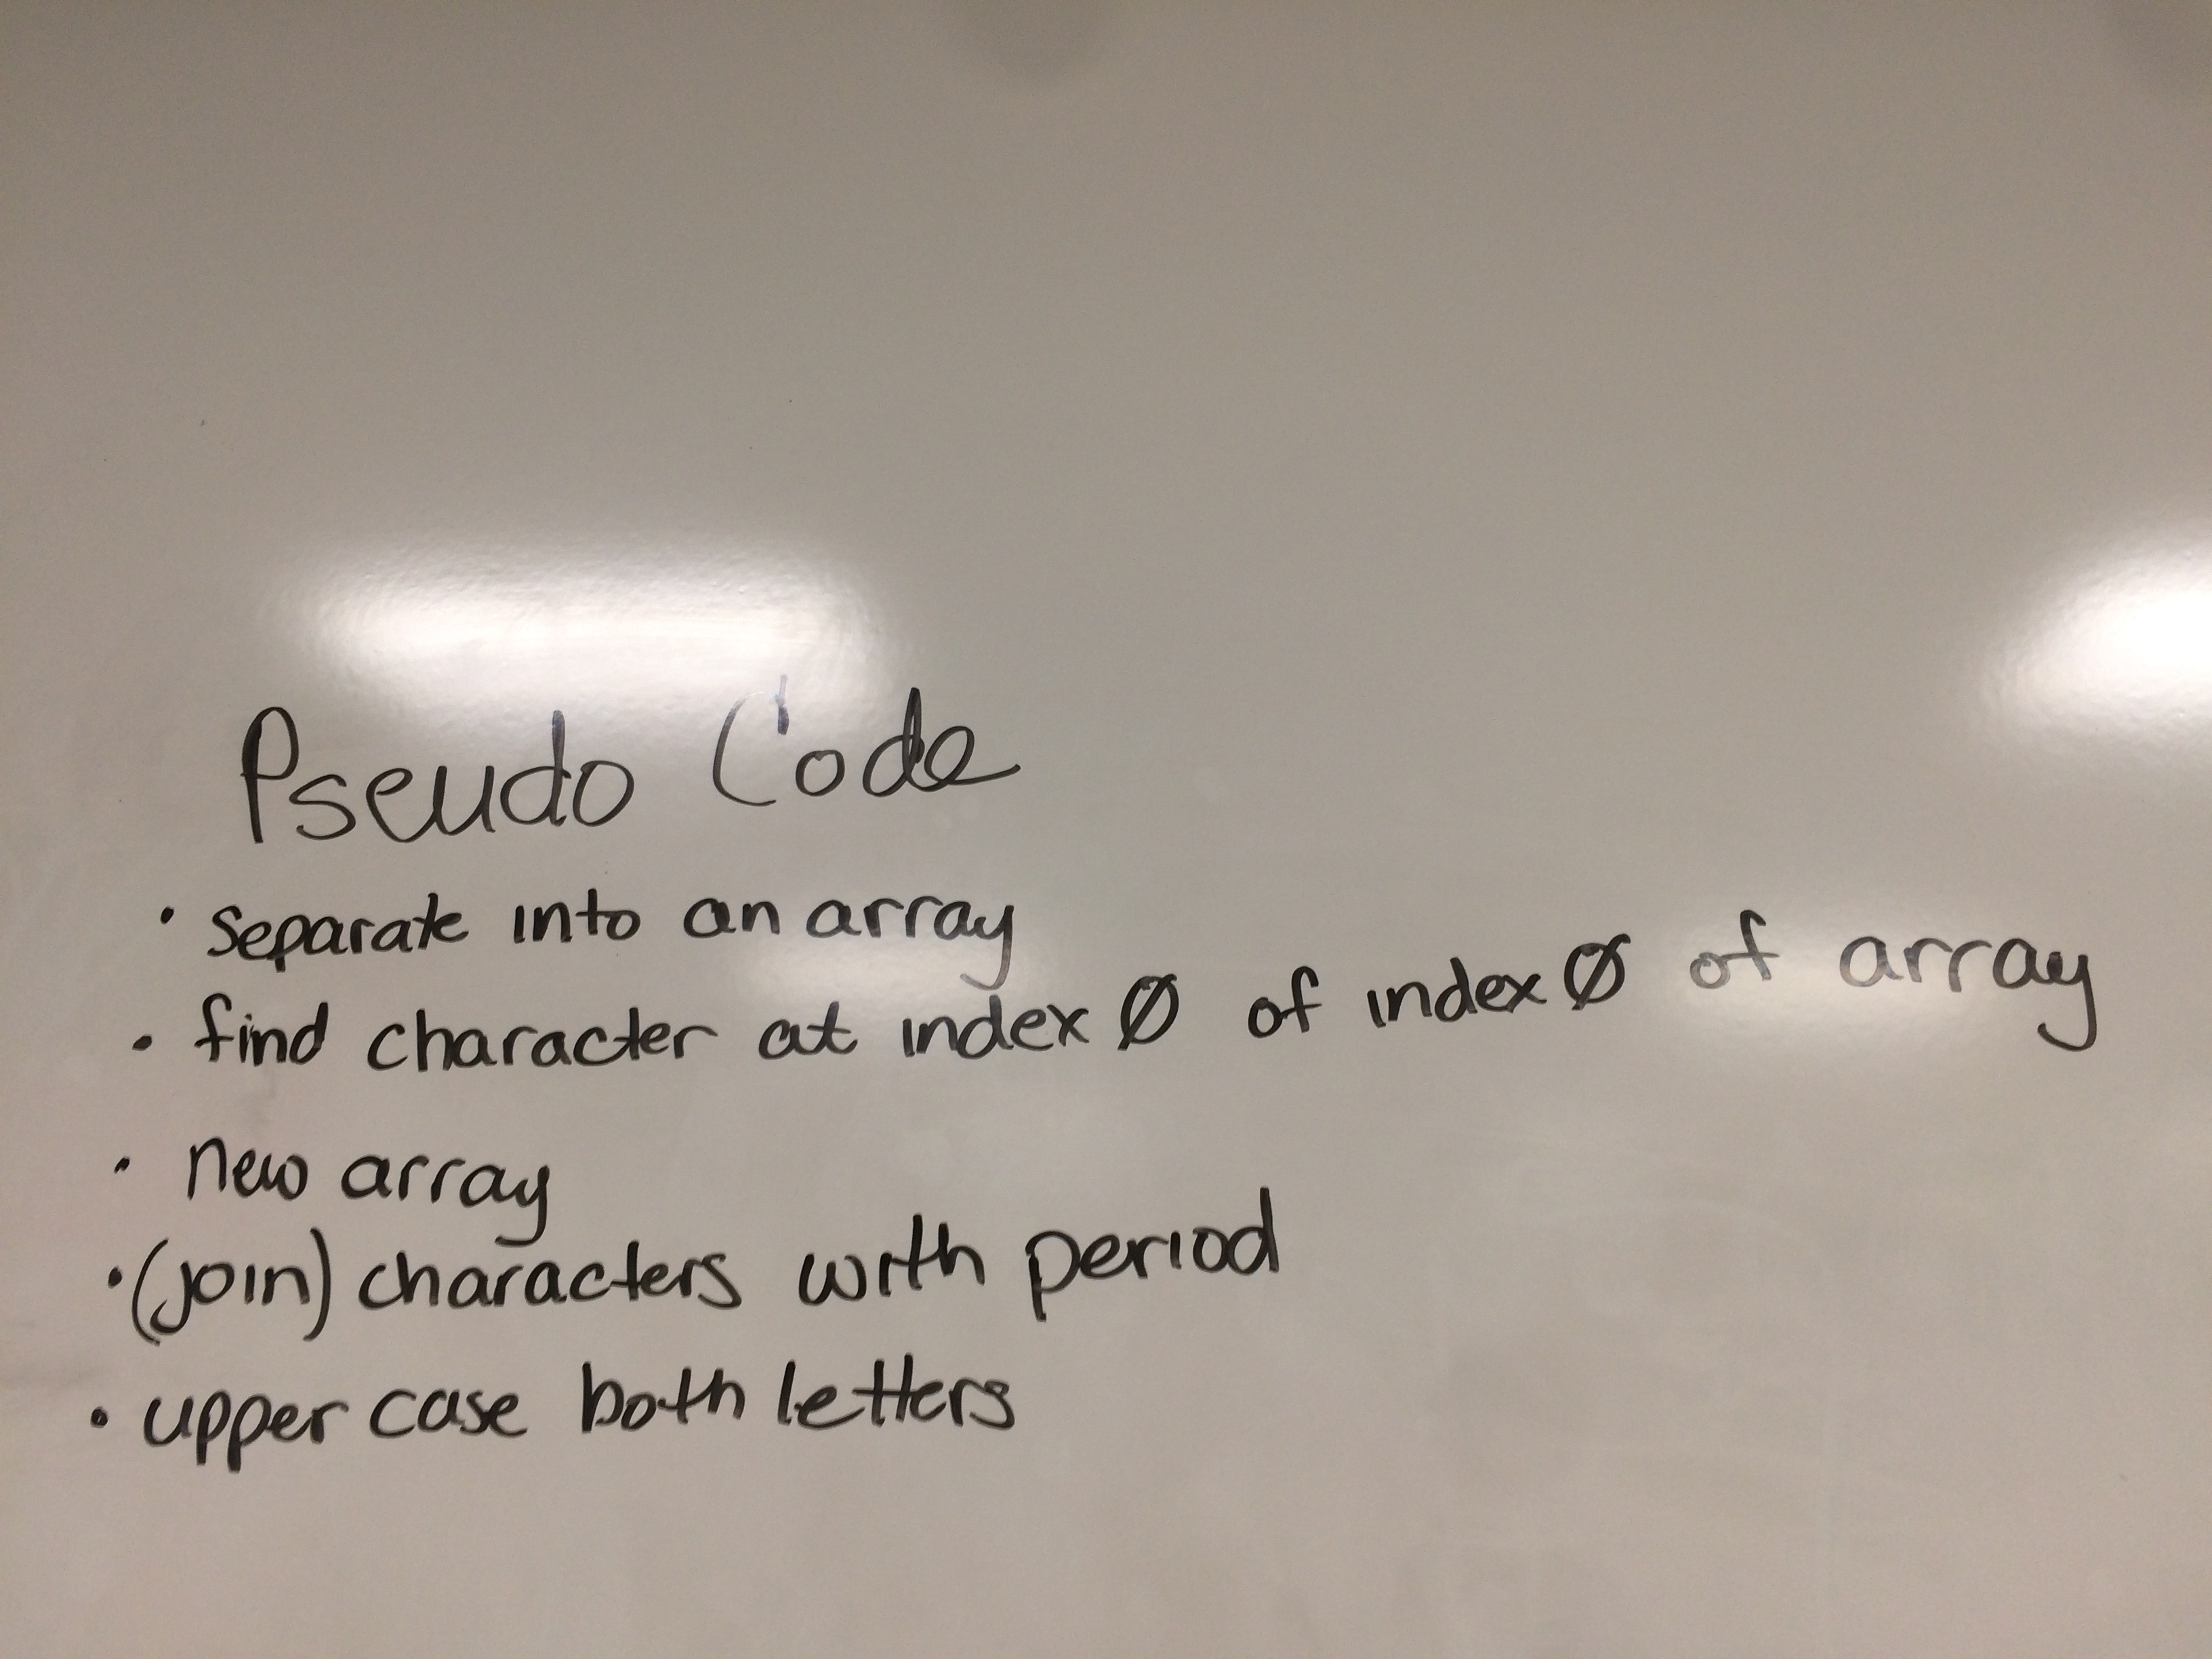 Pseudo Code
• separate into an array
• find character at index Ø of index Ø of array
• new array
• (join) characters with period
• upper case both letters